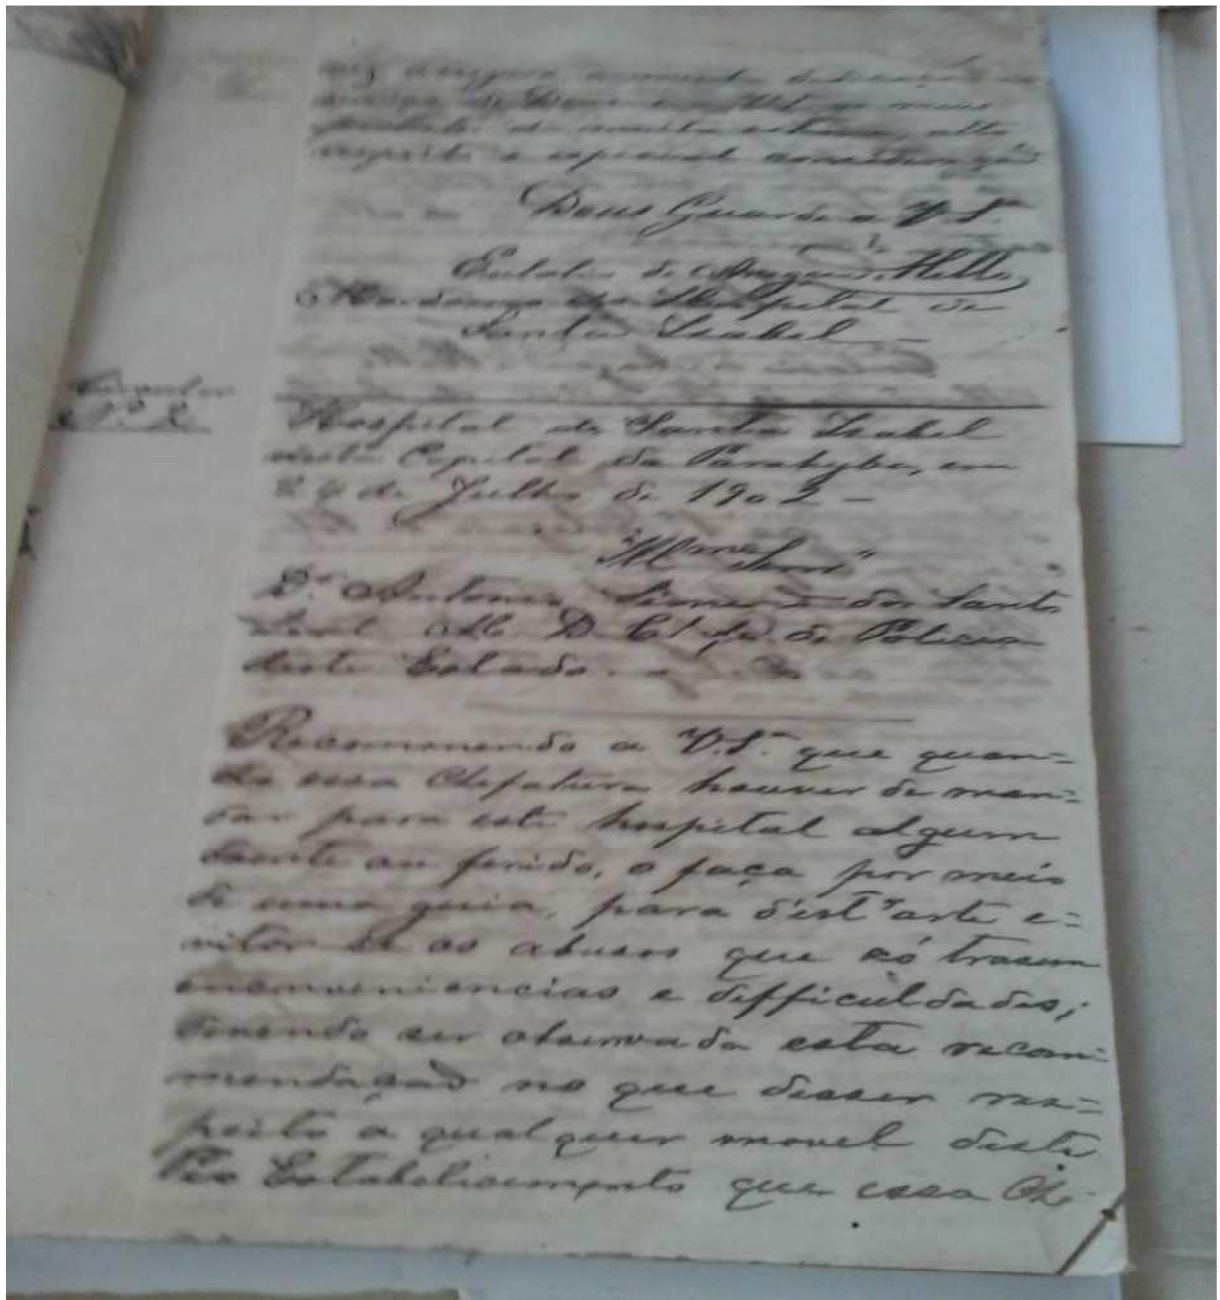 de muita estima, alto
respeito e especial consideração
Deus Guarde a V.S.ª
Eutalio de Aragão e Mello
Mordomo do Hospital de
Santa Isabel
Circular
N.º 2
Hospital de Santa Isabel
desta Capital da Parahyba, em
24 de Julho de 1902 –
Dr. Antonio Simeão dos Santos
Leal M. D. Chefe de Policia
deste Estado. –
Recommendo a V.S.ª que quan=
do essa Chefatura houver de man=
dar para este hospital algum
doente ou ferido, o faça por meio
de uma guia, para d'est'arte e=
vitar se os abusos que só trasem
enconveniencias e difficuldades;
devendo ser observada esta recom=
mendação no que disser res=
peito a qualquer movel deste
Pio Estabelicimento que essa Che